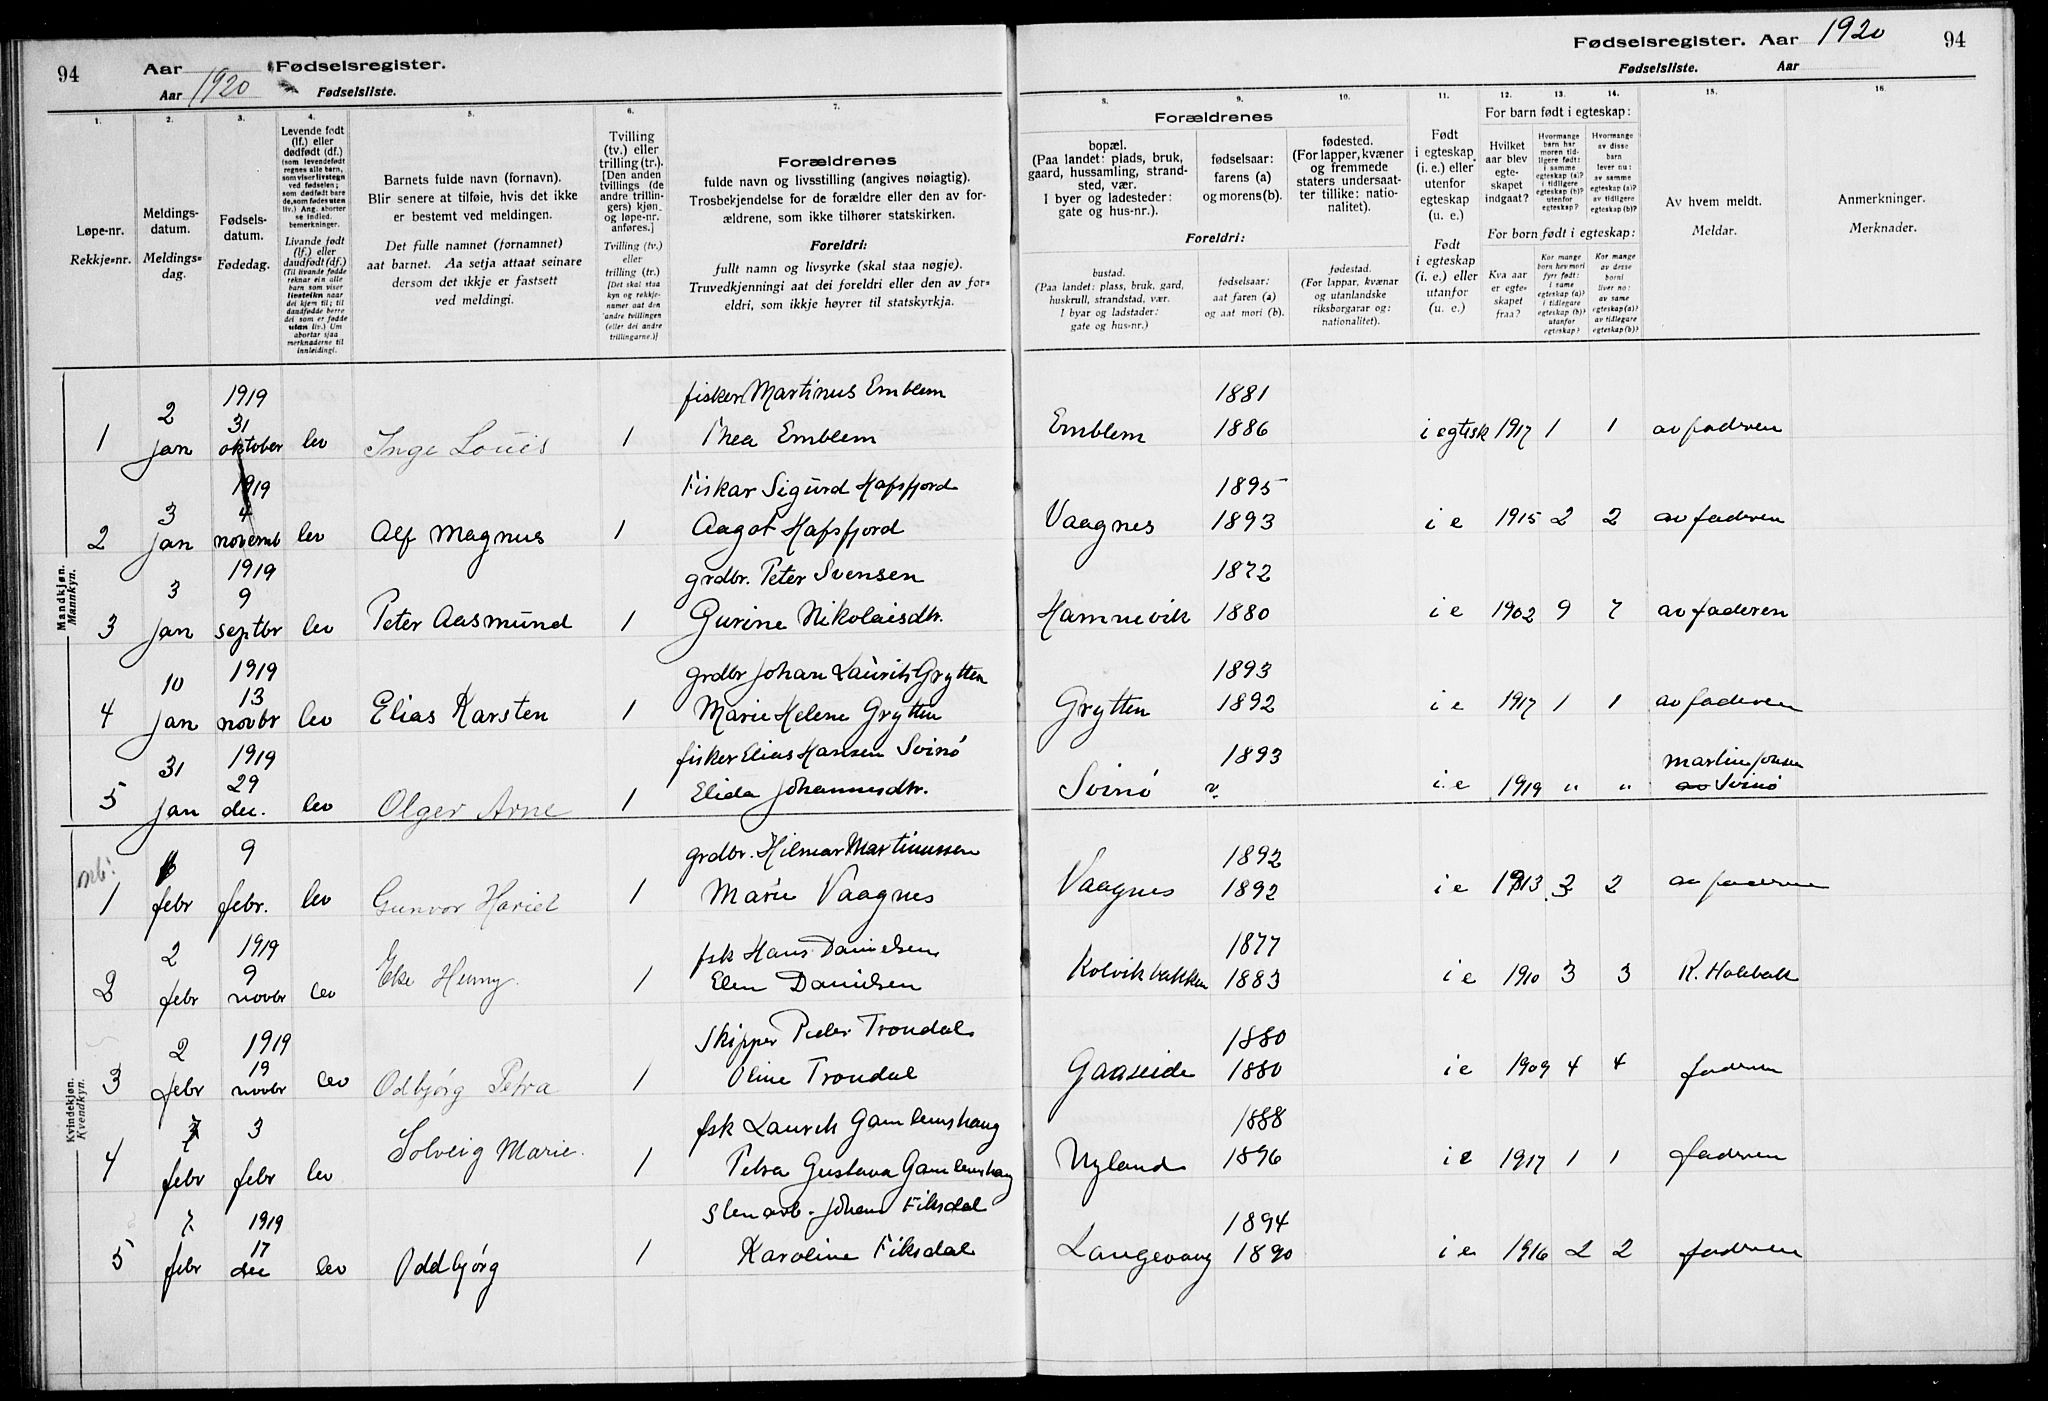 94
Aar 1920 Fødselsregister.
Aar Fødselsliste.
Fødselsregister. Aar 1920 94
Fødselsliste. Aar
1. 2. 3. 4. 5. 6. 7.
8. 9. 10. 11. 12. 13. 14. 15. 16.
Løpe-nr.
Rekkje=nr.
Meldings-
datum.
Meldings=
dag.
Fødsels-
datum.
Fødedag.
Levende født
(lf.) eller
dødfødt (df.)
(som levendefødt
regnes alle barn,
som viser livstegn
ved fødselen;
som dødfødt bare
de, som fødes uten
liv.) Ang. aborter
se indled.
bemerkninger.
Livande født
(lf.) eller
daudfødt (df.)
(Til livande fødde
reknar ein alle
barn som viser
livsteikn naar
dei kjem til; til
daudfødde berre
dei som er fødde
utan liv.) Um
abortar sjaa
merknaderne til
innleidingi.
Barnets fulde navn (fornavn).
Blir senere at tilføie, hvis det ikke
er bestemt ved meldingen.
Det fulle namnet (fornamnet)
aat barnet. Aa setja attaat seinare
dersom det ikkje er fastsett
ved meldingi.
Tvilling
(tv.) eller
trilling (tr.).
[Den anden
tvillings (de
andre trillin-
gers) kjøn
og løpe-nr.
anføres.]
Tvilling (tv.)
eller
trilling (tr.)
[Det skal staa
kyn og rekkje-
numer aat den
andre tvillingen
(eller dei andre
trillingarne.)]
Forældrenes
fulde navn og livsstilling (angives nøiagtig).
Trosbekjendelse for de forældre eller den av for-
ældrene, som ikke tilhører statskirken.
Foreldri:
fullt namn og livsyrke (skal staa nøgje).
Truvedkjenningi aat dei foreldri eller den av for=
eldri, som ikkje høyrer til statskyrkja.
Forældrenes
bopæl.
(Paa landet: plads, bruk,
gaard, hussamling, strand-
sted, vær.
I byer og ladesteder:
gate og hus-nr.).
fødselsaar:
farens (a)
og morens (b).
fødested.
(For lapper, kvæner
og fremmede
staters undersaat-
ter tillike: natio-
nalitet).
Foreldri:
bustad.
(Paa landet: plass, bruk, gard,
huskrull, strandstad, vær.
I byar og ladstader:
gate og hus-nr.)
fødselsaar:
aat faren (a)
og aat mori (b).
fødestad.
(For lappar, kvænar
og utanlandske
riksborgarar og:
nationalitet).
Født
i egteskap
(i. e.) eller
utenfor
egteskap
(u. e.)
Født
i egteskap
(i. e.) eller
utanfor
(u. e.)
For barn født i egteskap:
Hvilket
aar blev
egte-
skapet
indgaat?
Hvormange
barn har
moren tid-
ligere født:
i samme
egteskap (a)?
i tidligere
egteskap (b)?
utenfor
egteskap?
Hvormange
av disse
barn
lever nu:
av samme
egteskap (a)?
av tidligere
egteskap (b)?
For born født i egteskap:
Kva aar
er egte-
skapet
fraa?
Kor mange
born hev mori
fyrr født:
i same
egteskap (a)?
i tidlegare
egteskap (b)?
utanfor
egteskap?
Kor mange
av desse
borni
liver no:
av same
egteskap (a)?
av tidlegare
egteskap (b)?
Av hvem meldt.
Meldar.
Anmerkninger.
Merknader.
Mandkjøn.
Mannkyn.
1 2 jan 1919 31 oktober lev Inge Louis 1 fisker Martinus Emblem
Thea Emblem Emblem 1881 1886 i egtesk 1917 1 1 av faderen
2 3 jan 1919 4 novemb lev Alf Magnus 1 Fiskar Sigurd Hafsfjord
Aagot Hafsfjord Vaagnes 1895 1893 i e 1915 2 2 av faderen
3 3 jan 1919 9 septbr lev Peter Aasmund 1 grdbr. Peter Svensen
Gurine Nikolaisdtr. Hamnevik 1872 1880 i e 1902 9 7 av faderen
4 10 jan 1919 13 novbr lev Elias Karsten 1 grdbr Johan Laurits Grytten
Marie Helene Grytten Grytten 1893 1892 i e 1917 1 1 av faderen
5 31 jan 1919 29 dec. lev Olger Arne 1 fisker Elias Hansen Svinö
Elida Johannesdtr. Svinö 1893 i.e 1919 " " Martin Jonsen
av Svinö
Kvindekjøn.
Kvendkyn.
1 febr 9 febr. lev Gunvor Hariet 1 grdbr. Hilmar Martinussen
Marie Vaagnes Vaagnes 1892 1892 i e 1913 3 2 av faderen
2 2 febr 1919 9 novbr lev Else Henny. 1 fsk Hans Danielsen
Elen Danielsen Kolvikbakken 1877 1883 i e 1910 3 3 R. Holebak
3 2 febr 1919 19 novbr lev Odbjørg Petra 1 Skipper Peder Trondal
Oline Trondal Gaaseide 1880 1880 i e 1909 4 4 faderen
4 7 febr 3 febr lev Solveig Marie. 1 fsk Laurits Gamlemshaug
Petra Gustava Gamlemshaug Nyland 1888 1896 i e 1917 1 1 faderen
5 7. febr 1919 17 dec lev Oddbjørg 1 Stenarb. Johan Fiksdal
Karoline Fiksdal Langevaag 1894 1890 i e 1916 2 2 faderen